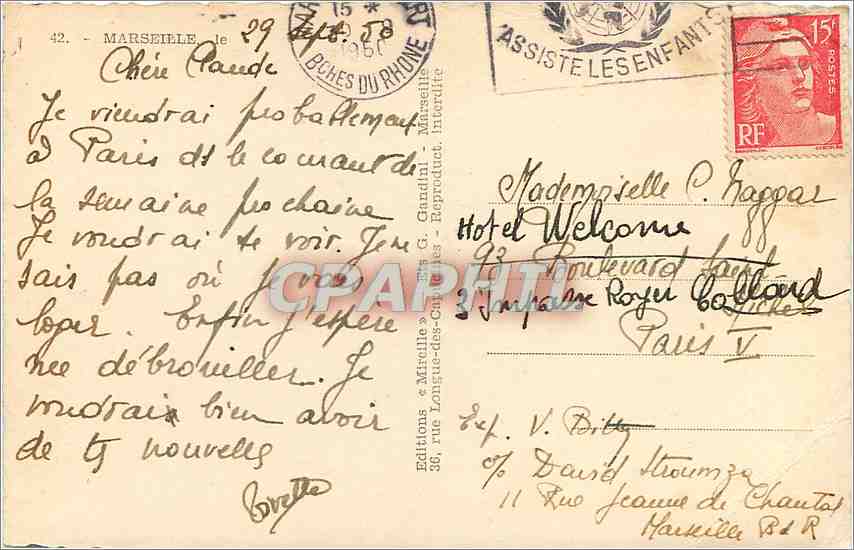 42. - MARSEILLE, le 29 Sept. 50
Chère Claude
Je viendrai probablement
à Paris ds le courant de
la semaine prochaine
Je voudrai te voir. Je ne
sais pas où je vais
loger. Enfin j'espère
me débrouiller. Je
voudrais bien avoir
de ts nouvelles
15 *
1950
BCHES DU RHONE
ASSISTE LES ENFANTS
15F
POSTES
RF
Editions « Mireille » - Ets G. Gandini - Marseille
36, rue Longue-des-Capucines - Reproduct. interdite
Mademoiselle C. Naggar
Hotel Welcome 88
93 Boulevard Saint
3 Impasse Royer Collard
Michel
Paris V
Exp. V. Bitty
c/o David Stroumza
11 Rue Jeanne de Chantal
Marseille B d R
CPAPHIL